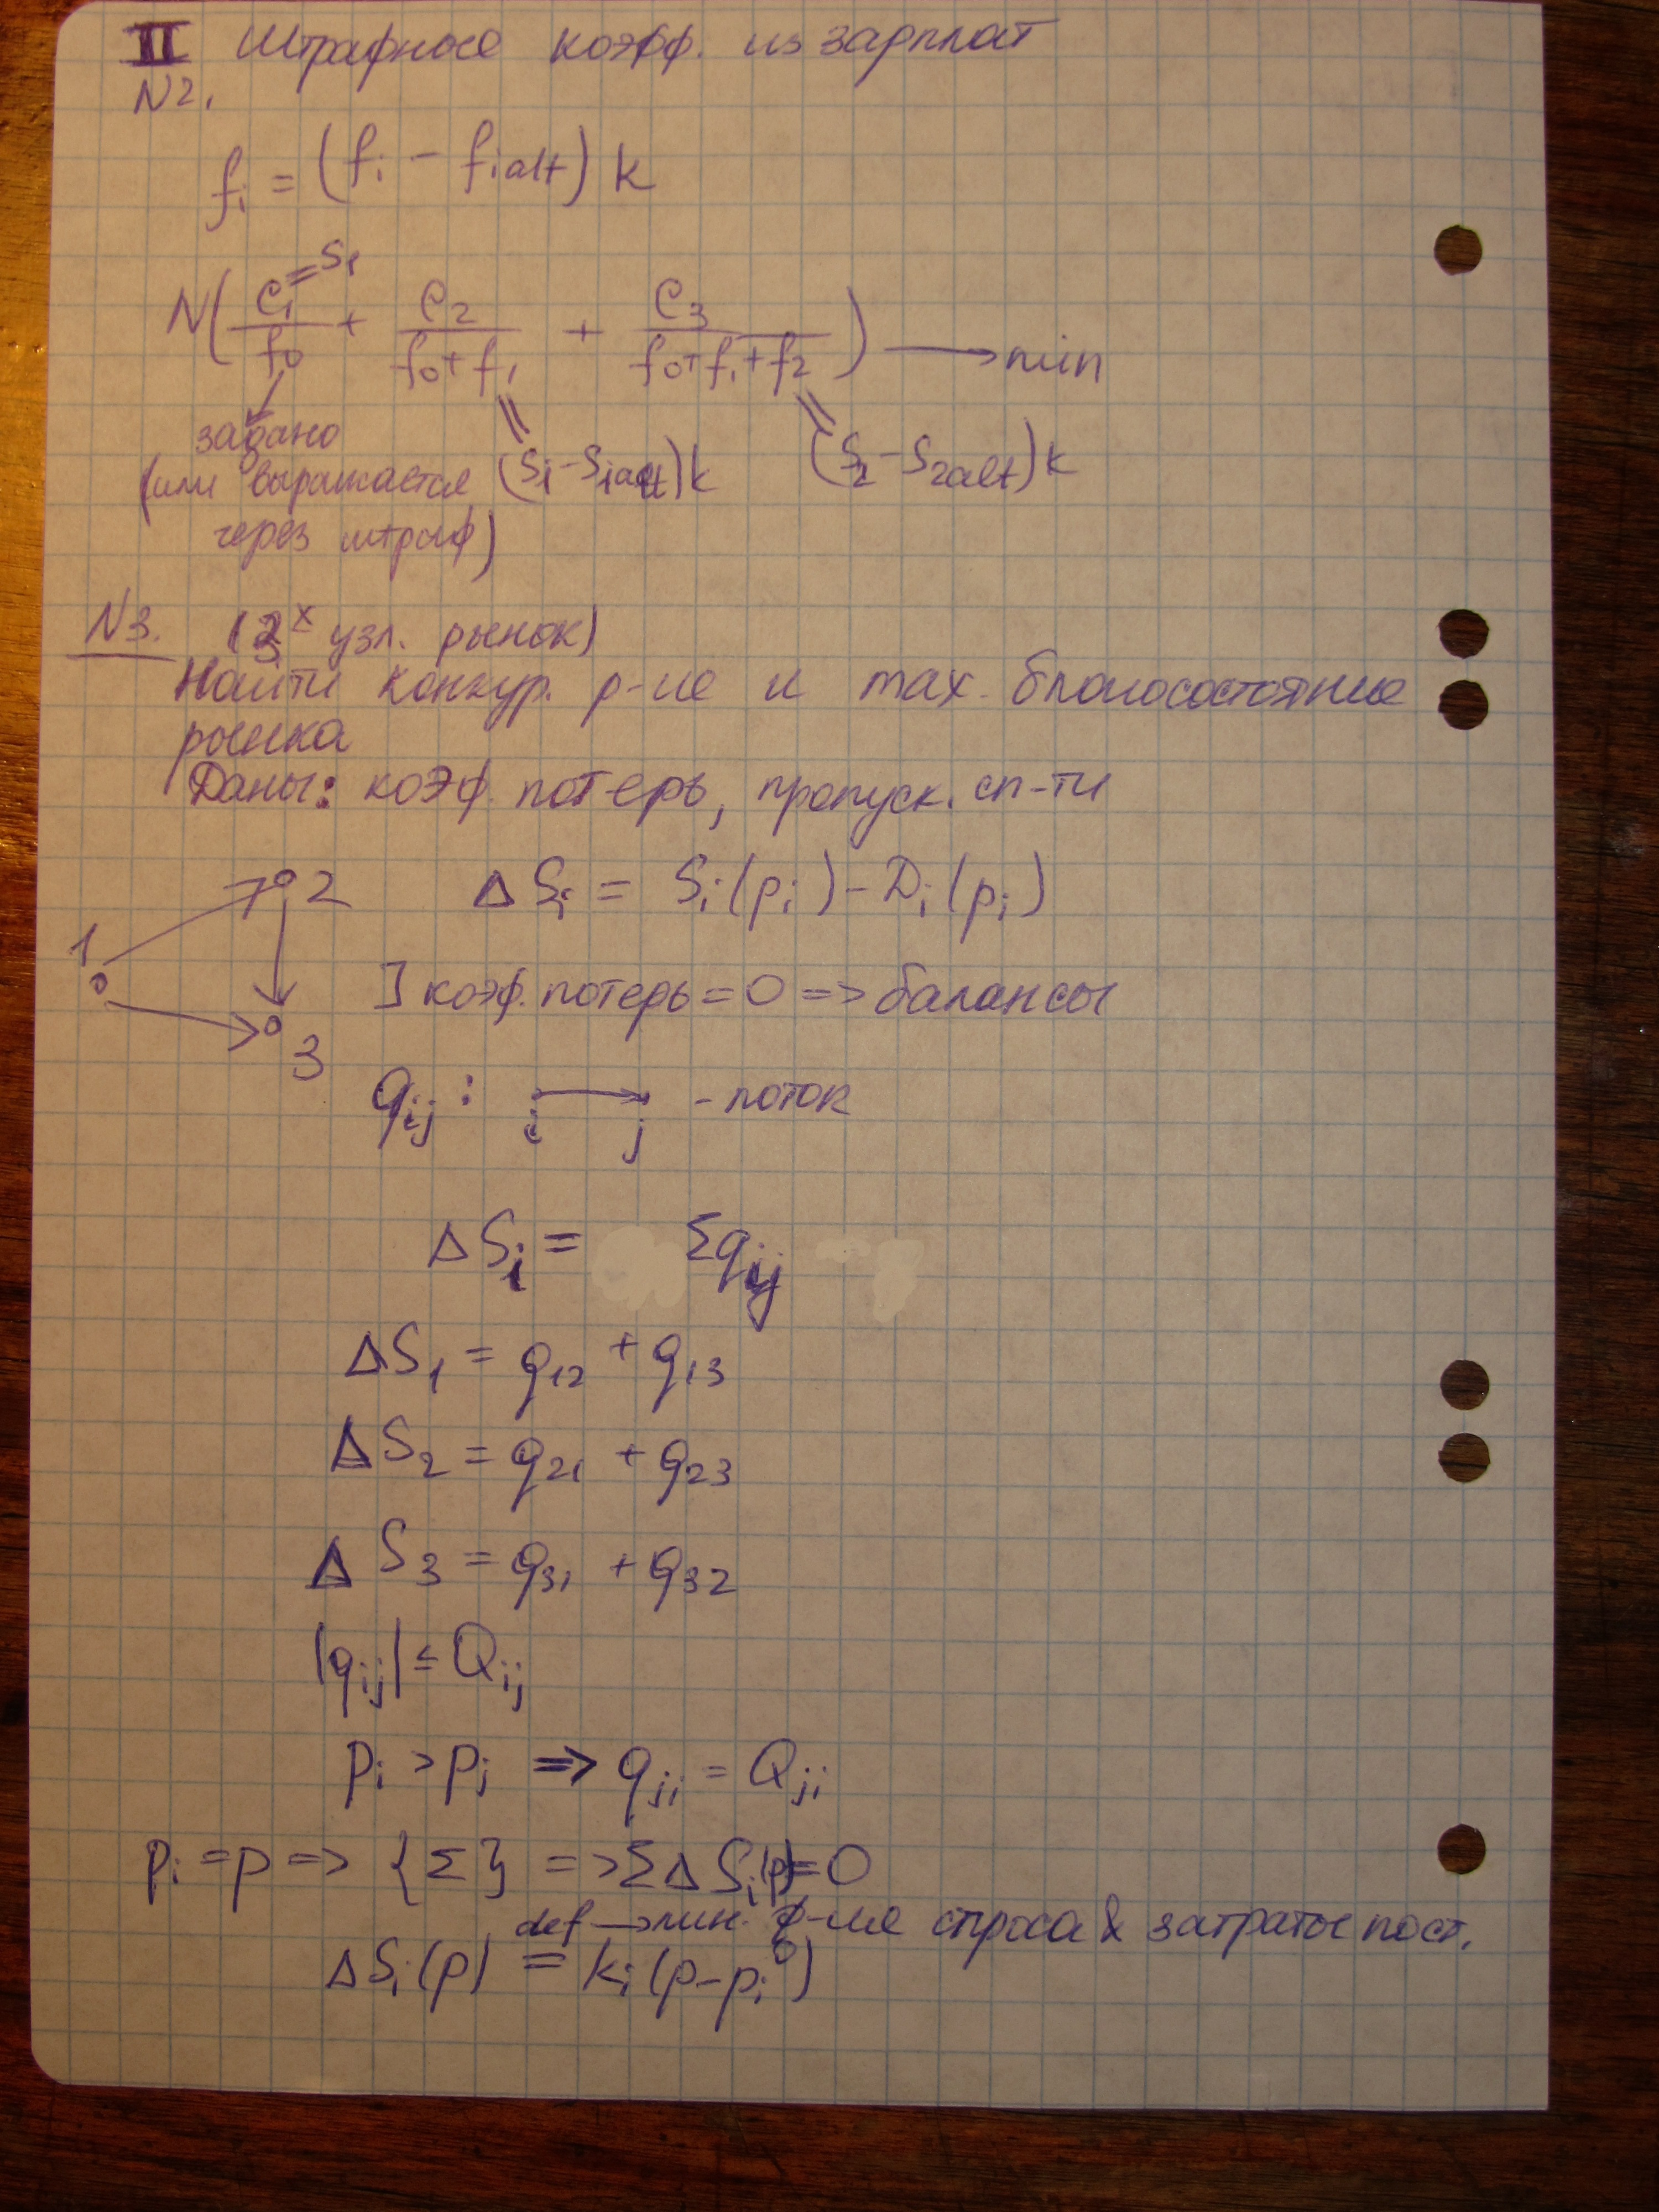 II Штрафные коэфф. из зарплат
N2.
f_i = (f_i − f_i alt) k
N( C_1/f_0 + C_2/(f_0+f_1) + C_3/(f_0+f_1+f_2) ) → min
= S_1
задано
(или выражается через штраф)
= (S_1 − S_1alt) k
= (S_2 − S_2alt) k
N3. (3^х узл. рынок)
Найти конкур. р-ие и max. благосостояние
рынка
Даны: коэф. потерь, пропуск. сп-ти
1 2 3
ΔS_i = S_i(p_i) − D_i(p_i)
] коэф. потерь = 0 => балансы
q_ij : i → j - поток
ΔS_i = Σq_ij
ΔS_1 = q_12 + q_13
ΔS_2 = q_21 + q_23
ΔS_3 = q_31 + q_32
|q_ij| ≤ Q_ij
p_i > p_j => q_ji = Q_ji
p_i = p => {Σ} => ΣΔS_i(p) = 0
def → лин. ф-ие спроса & затраты пост.
ΔS_i(p) = k_i(p − p_i^0)